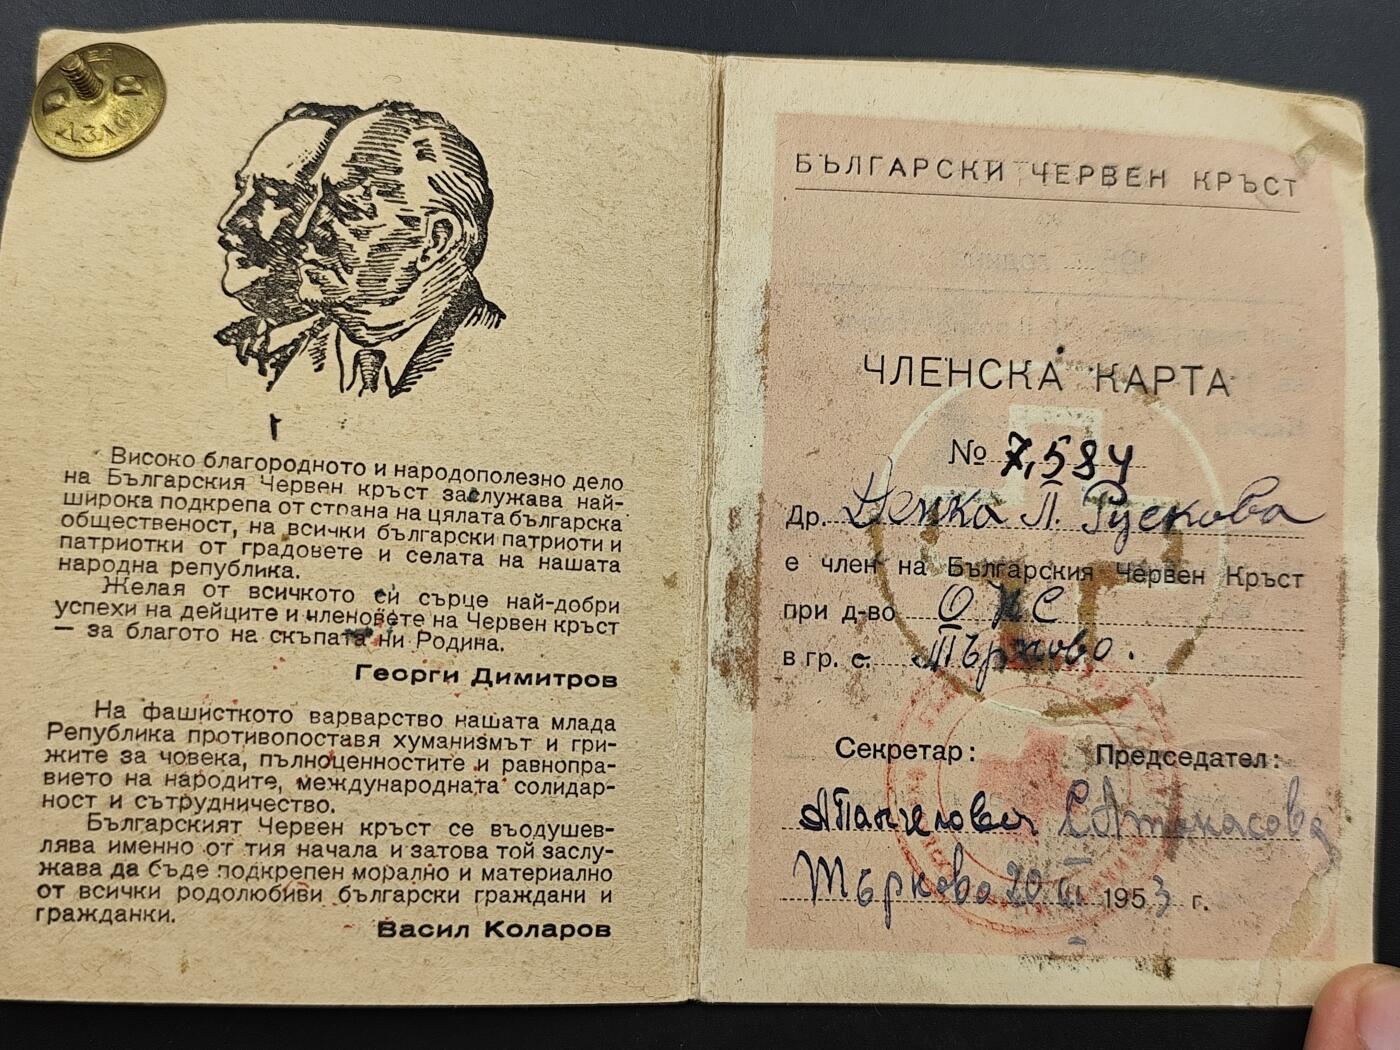 Високо благородното и народополезно дело
на Българския Червен кръст заслужава най-
широка подкрепа от страна на цялата българска
общественост, на всички български патриоти и
патриотки от градовете и селата на нашата
народна република.
Желая от всичкото си сърце най-добри
успехи на дейците и членовете на Червен кръст
— за благото на скъпата ни Родина.
Георги Димитров
На фашисткото варварство нашата млада
Република противопоставя хуманизмът и гри-
жите за човека, пълноценностите и равнопра-
вието на народите, международната солидар-
ност и сътрудничество.
Българският Червен кръст се въодушев-
лява именно от тия начала и затова той заслу-
жава да бъде подкрепен морално и материално
от всички родолюбиви български граждани и
гражданки.
Васил Коларов
БЪЛГАРСКИ ЧЕРВЕН КРЪСТ
ЧЛЕНСКА КАРТА
№ 7,584
Др. Ценка П. Рускова
е член на Българския Червен Кръст
при д-во ОНС
в гр. с. Търново.
Секретар: Председател:
АПангелова САтанасова
Търново 20 III 1953 г.